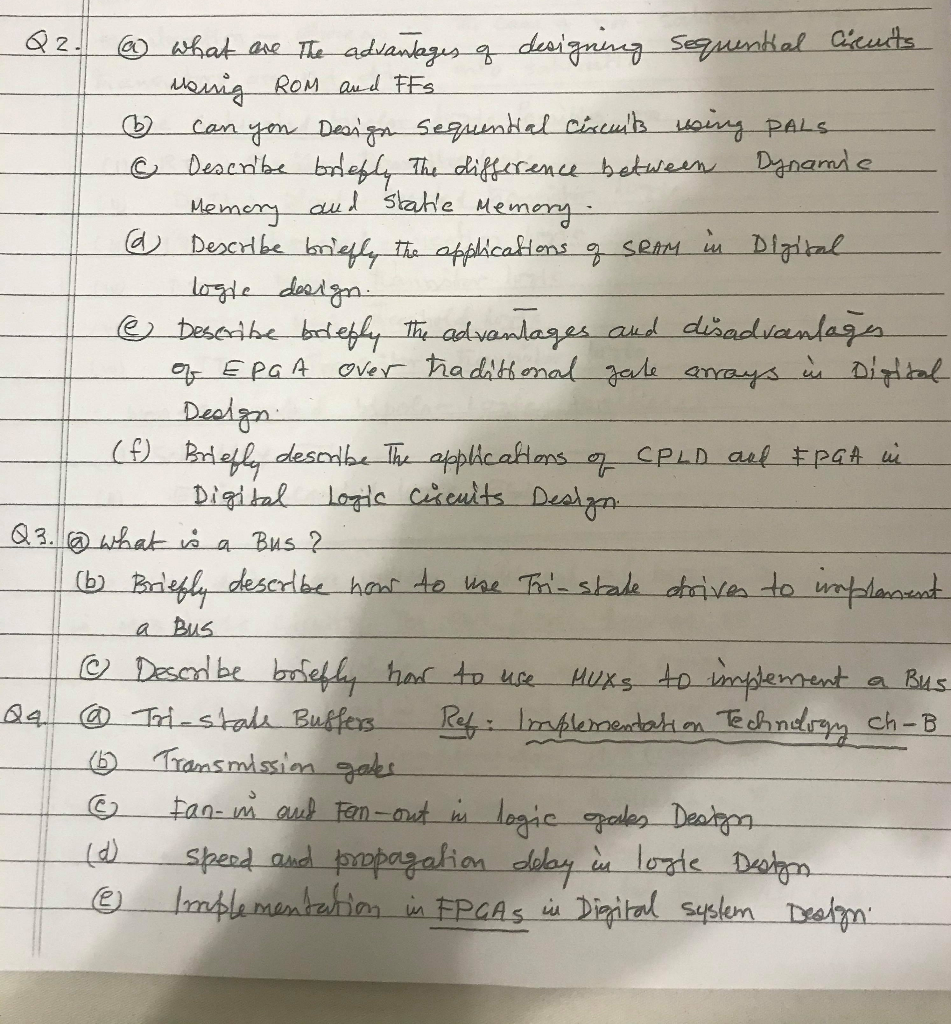 Q2. (a) What are The advantages of designing Sequential Circuits
using ROM and FFs
(b) Can you Design Sequential circuits using PALs
(c) Describe briefly The difference between Dynamic
Memory and Static Memory.
(d) Describe briefly the applications of SRAM in Digital
logic design.
(e) Describe briefly The advantages and disadvantages
of FPGA over traditional gate arrays in Digital
Design.
(f) Briefly describe The applications of CPLD and FPGA in
Digital Logic Circuits Design.
Q3. (a) What is a Bus?
(b) Briefly describe how to use Tri-state drives to implement
a Bus
(c) Describe briefly how to use MUXs to implement a Bus
Q4 (a) Tri-state Buffers Ref: Implementation Technology ch-B
(b) Transmission gates
(c) Fan-in and Fan-out in logic gates Design
(d) Speed and propagation delay in logic Design
(e) Implementation in FPGAs in Digital system Design.